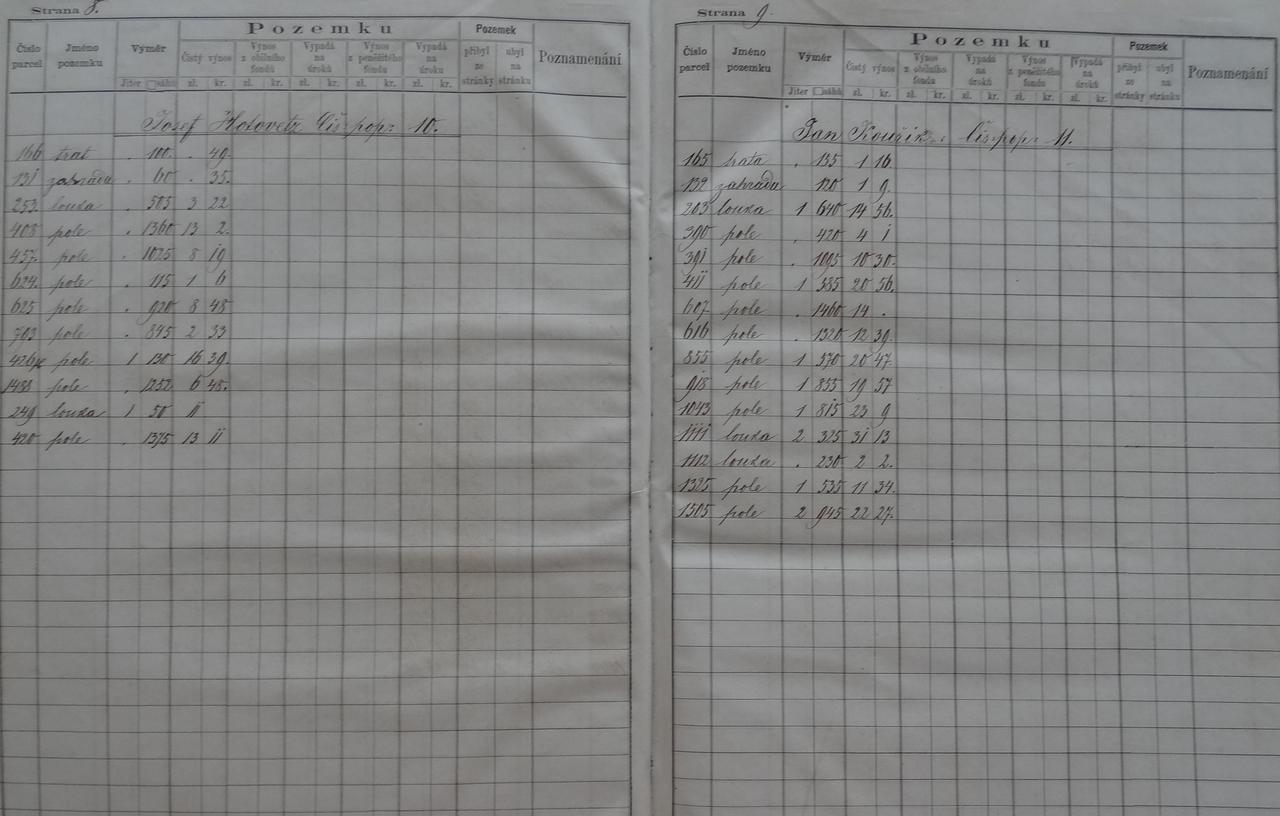 Strana 8.
Číslo parcel Jméno pozemku Výměr Pozemku Pozemek Poznamenání
Čistý výnos Výnos z obilního fondu Vypadá na úroků Výnos z peněžitého fondu Vypadá na úroku přibyl ze stránky ubyl na stránku
Jiter □sáhů zl. kr. zl. kr. zl. kr. zl. kr. zl. kr.
Josef Čís. pop. 10.
166 . 100. . 49.
131 zahrada . 60 . 35.
253. louka . 505 3 22
408 pole . 1360 13 2.
457. pole . 1025 8 19
624. pole . 115 1 6
625 pole . 920 8 48
793 pole . 845 2 33
pole 1 130 16 39.
1488 pole . 1252 6 45.
249 louka 1 50 11
420 pole . 1375 13 11
Strana 9.
Číslo parcel Jméno pozemku Výměr Pozemku Pozemek Poznamenání
Čistý výnos Výnos z obilního fondu Vypadá na úroků Výnos z peněžitého fondu Vypadá na úroku přibyl ze stránky ubyl na stránku
Jiter □sáhů zl. kr. zl. kr. zl. kr. zl. kr. zl. kr.
Jan Kouřík Čís. pop. 11.
165 . 135 1 16
132 zahrada 120 1 9.
203 louka 1 640 14 56.
390 pole . 420 4 1
391 pole . 1095 10 30.
411 pole 1 585 20 56.
607. pole . 1460 14 .
616 pole . 1320 12 39.
855 pole 1 570 20 47.
918 pole 1 855 19 57
1043 pole 1 815 23 9
1111 louka 2 325 31 13
1112 louka . 230 2 2.
1325 pole 1 535 11 34.
1505 pole 2 945 22 27.